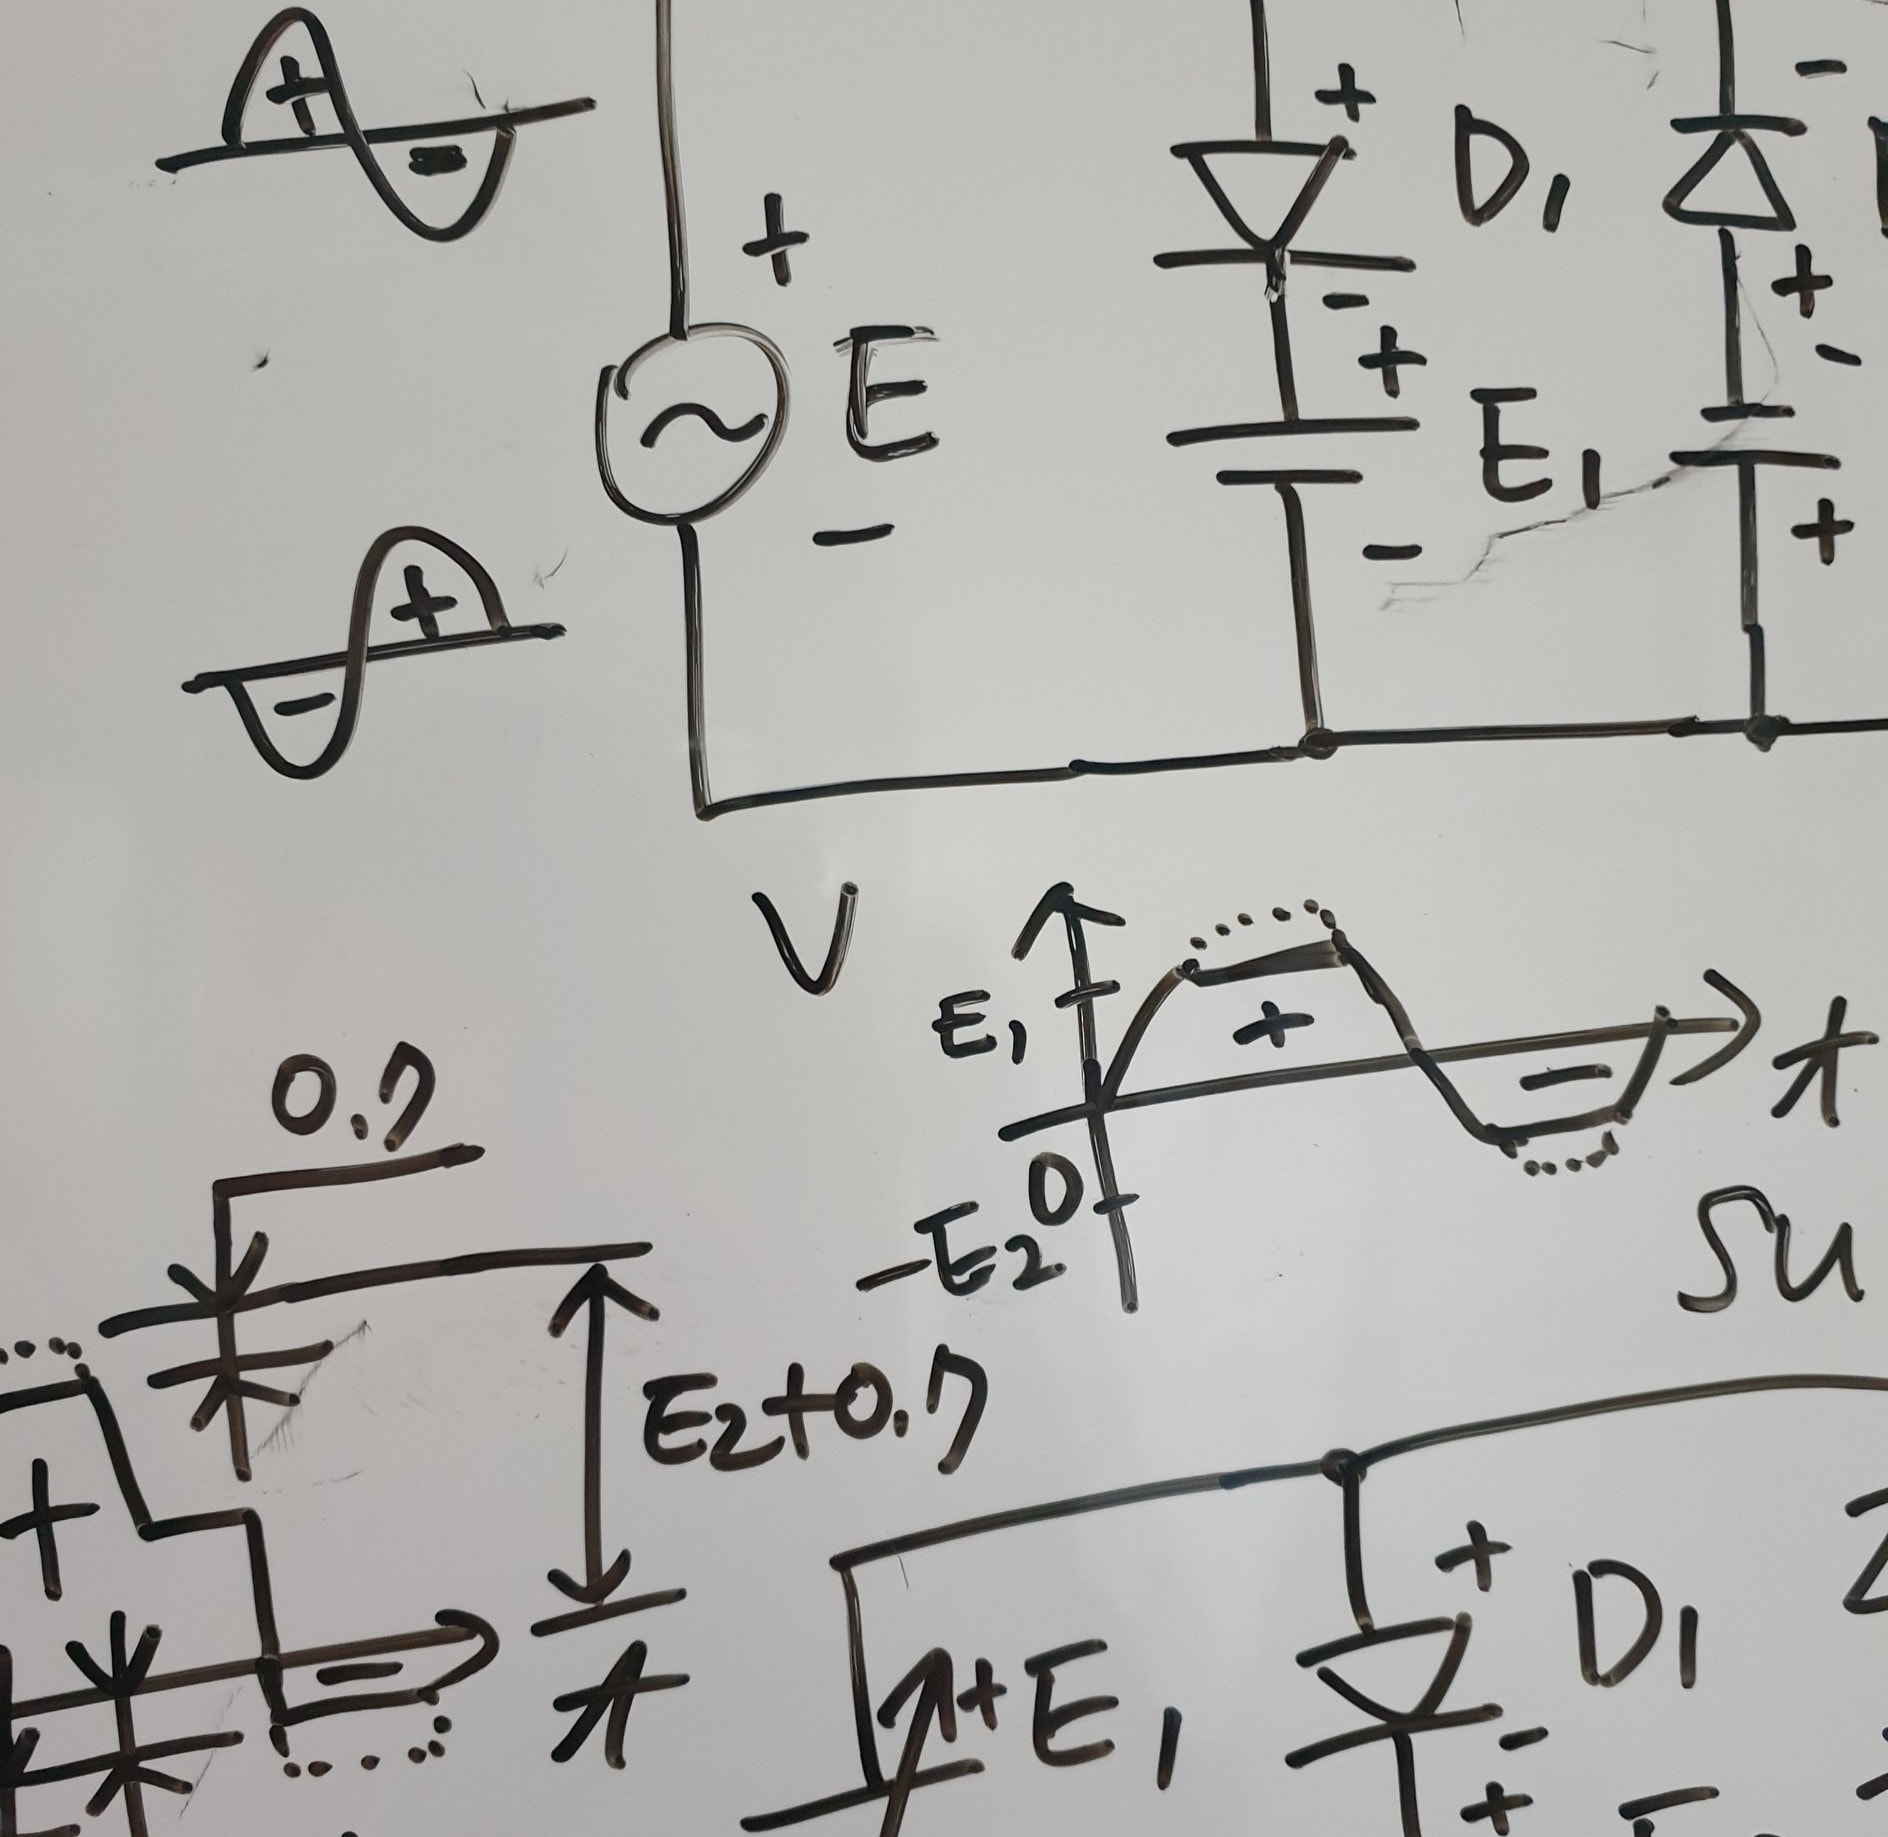 +
-
+
-
+
-
E
+
-
D1
+
-
E1
-
+
-
+
V
E1
0
-E2
+
-
t
Su
0.7
E2+0.7
+
-
t
+E1
+
-
D1
+